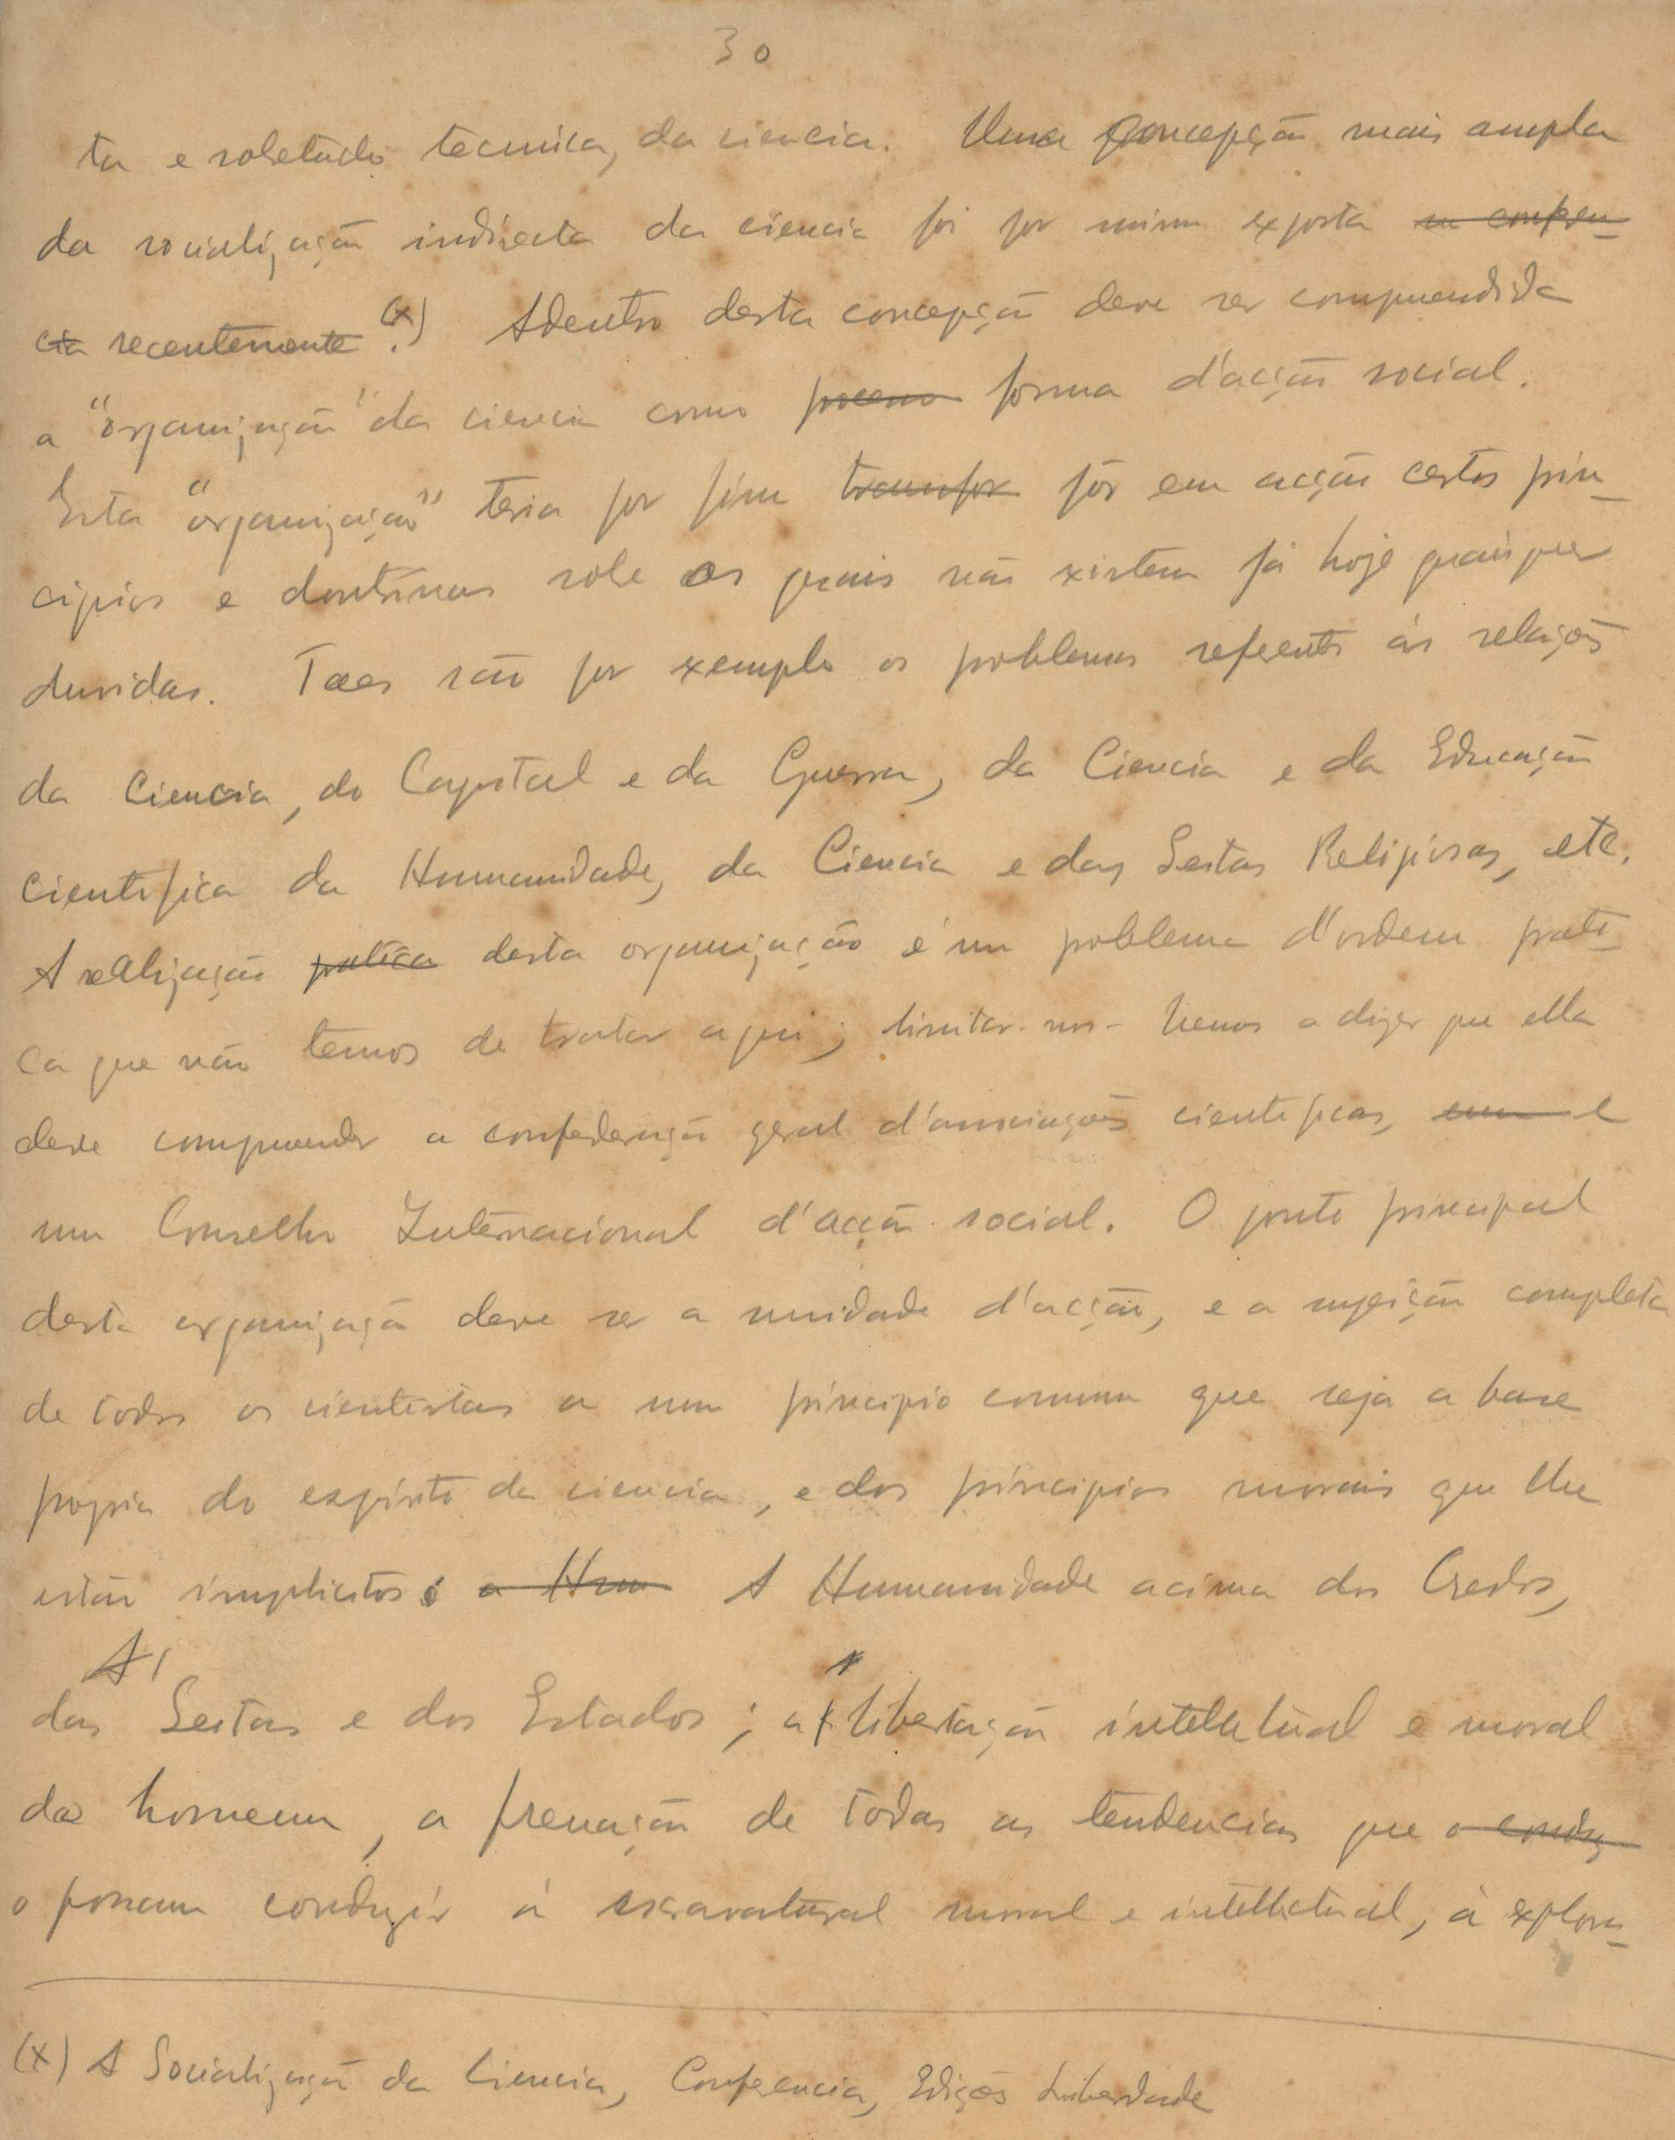 30
ta e sobetudo tecnica, da ciencia. Uma concepção mais ampla
da socialização indirecta da ciencia foi por mim exposta na conferen-
cia recentemente (x). Adentro desta concepção deve ser compreendida
a "organização" da ciencia como processo forma d'acção social.
Esta "organização" teria por fim transfor pôr em acção certos prin-
cipios e doutrinas sobe os quais não existem já hoje quaisquer
duvidas. Taes são por exemplo os problemas referentes ás relações
da Ciencia, do Capital e da Guerra, da Ciencia e da Educação
Cientifica da Humanidade, da Ciencia e das Seitas Religiosas, etc.
A realização pratica desta organização é um problema d'ordem prati-
ca que não temos de tratar aqui; limitar-nos-hemos a dizer que ella
deve compreender a confederação geral d'associações cientificas, e
um Conselho Internacional d'acção social. O ponto principal
desta organização deve ser a unidade d'acção, e a sujeição completa
de todos os cientistas a um principio comum que seja a base
propria do espirito da ciencia, e dos principios morais que lhe
estão implicitos: a Hum A Humanidade acima dos Credos,
das Seitas e dos Estados; a libertação intelectual e moral
do homem, a frenação de todas as tendencias que o conduz
o possam conduzir á escravatura moral e intellectual, á explora-
(x) A Socialização da Ciencia, Conferencia, Edições Liberdade